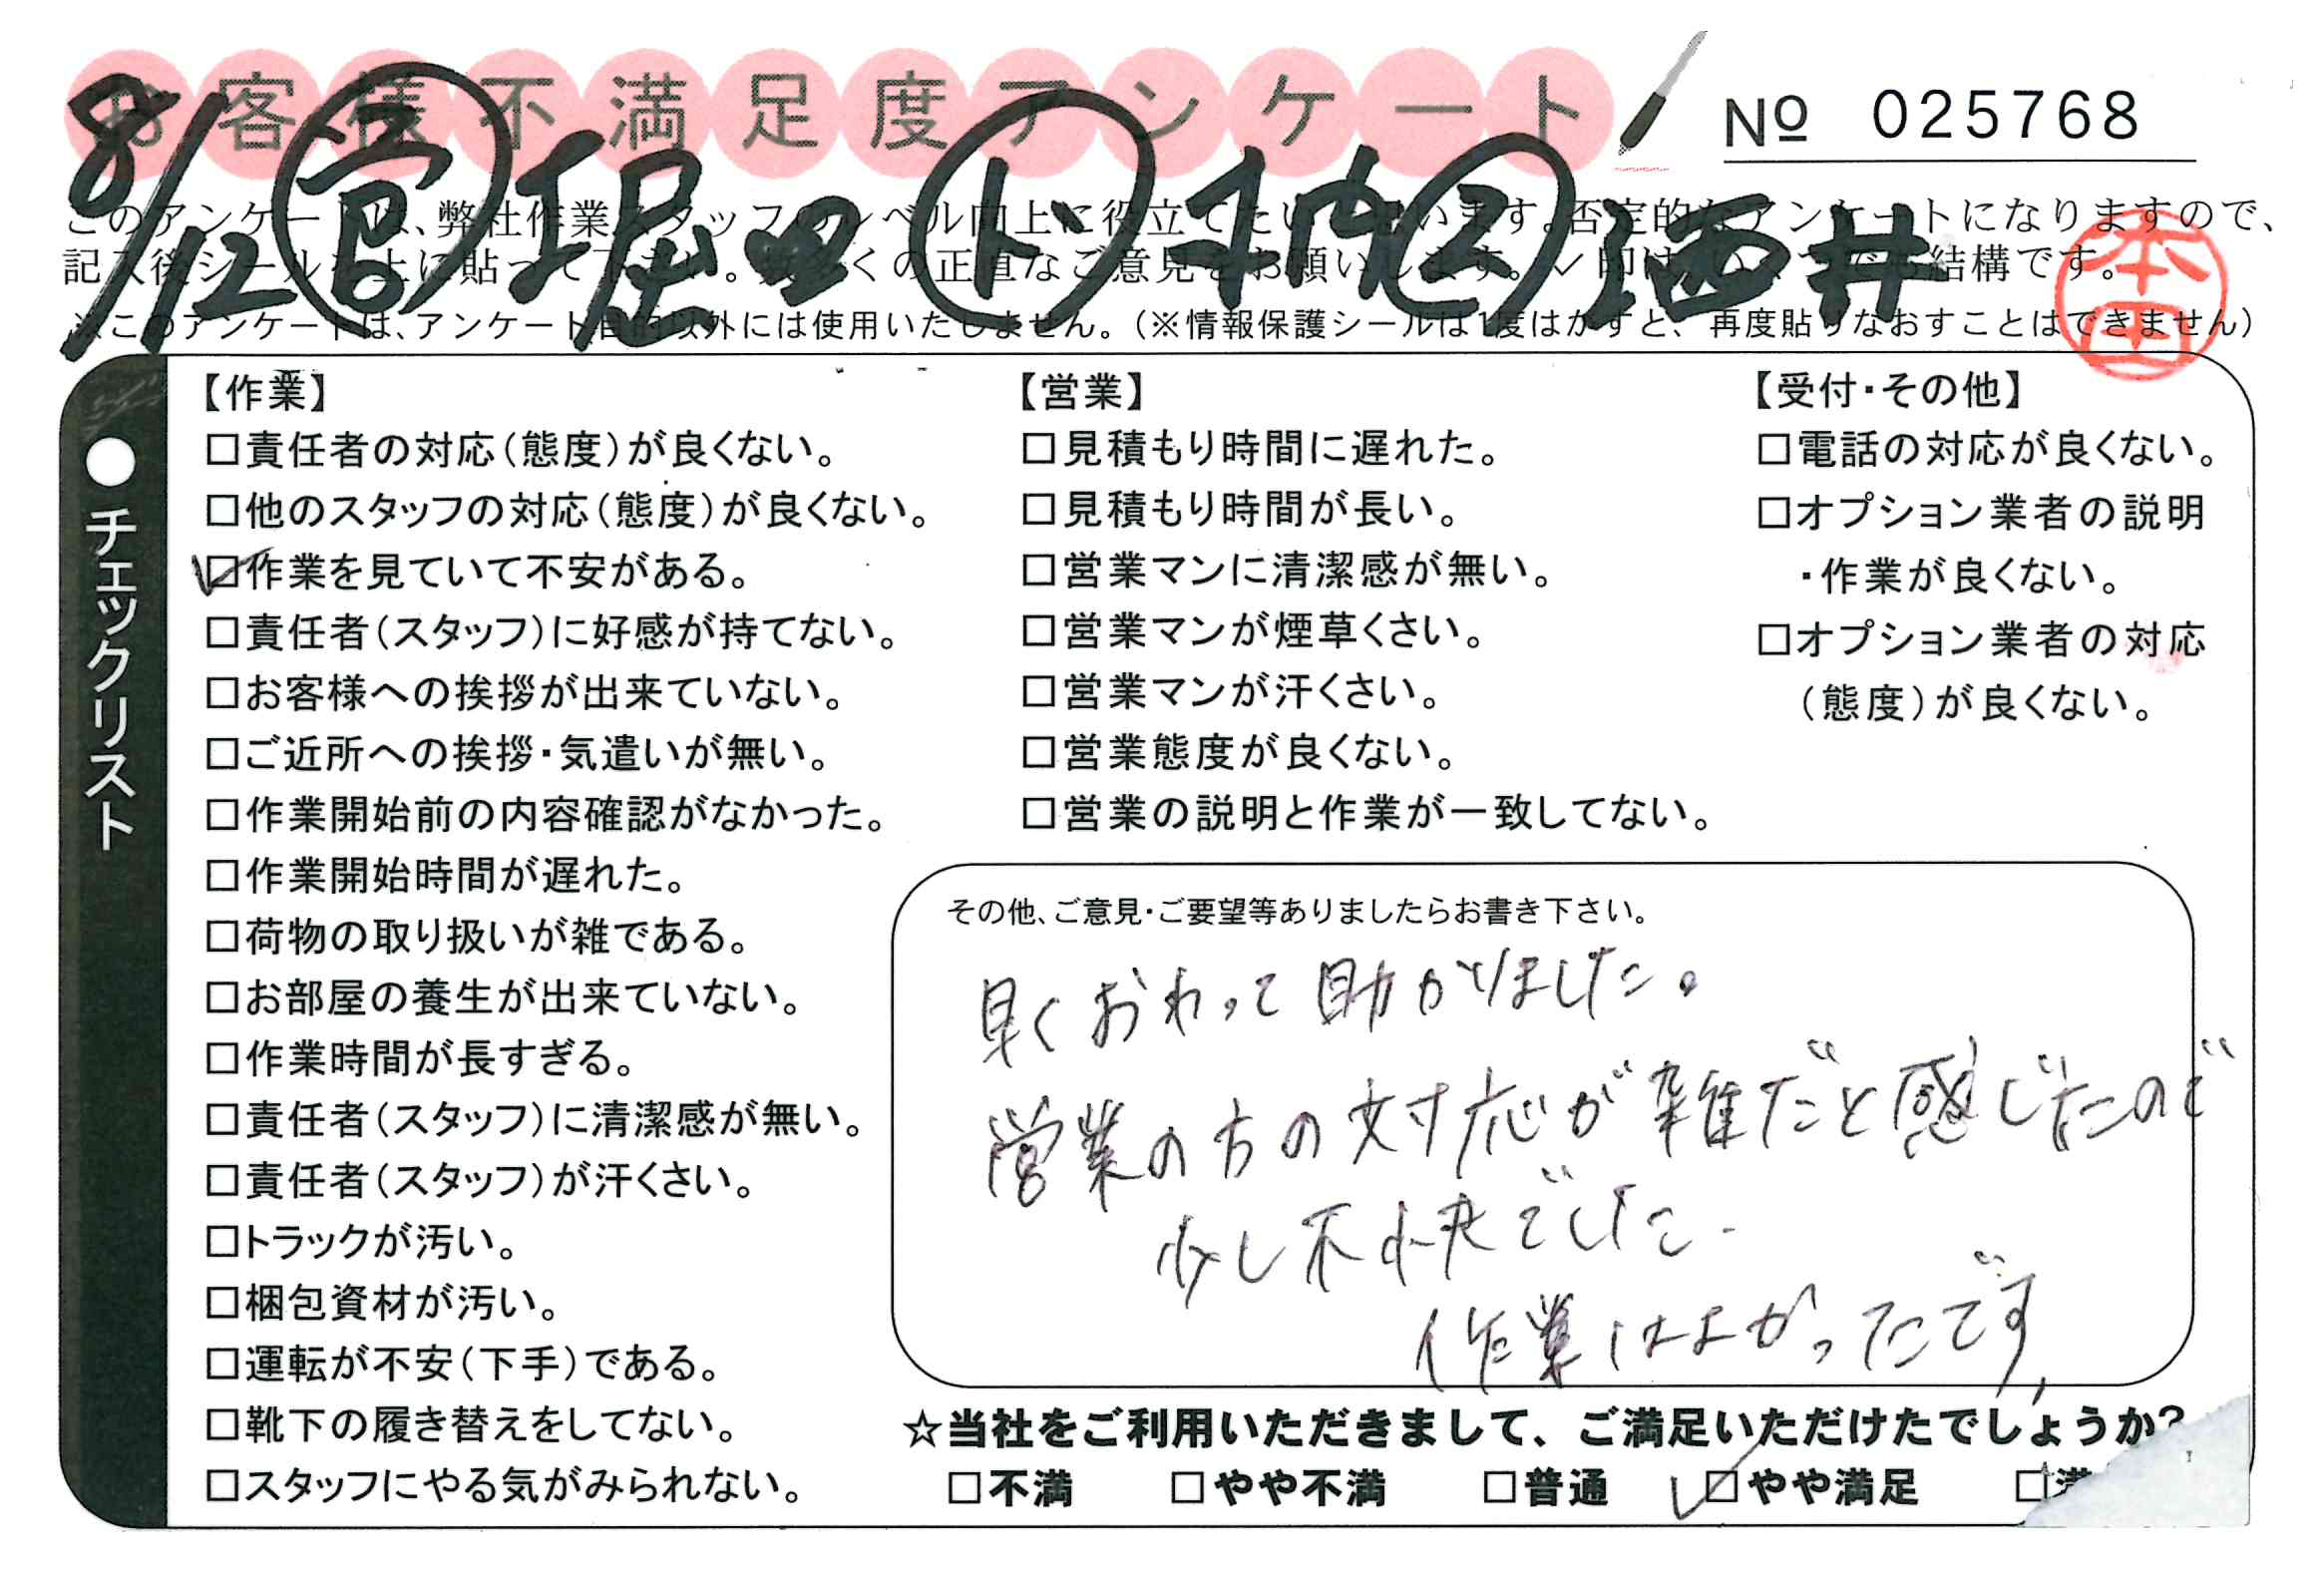 お客様不満足度アンケート
№ 025768
8/12 営 堀田 ト 2 酒井
このアンケートは、弊社作業スタッフのレベル向上に役立てたいと思います。否定的なアンケートになりますので、
記入後シールを上に貼って下さい。数多くの正直なご意見をお願いします。✓印はいくつでも結構です。
※このアンケートは、アンケート目的以外には使用いたしません。（※情報保護シールは1度はがすと、再度貼りなおすことはできません）
本田
●チェックリスト
【作業】
□責任者の対応（態度）が良くない。
□他のスタッフの対応（態度）が良くない。
☑作業を見ていて不安がある。
□責任者（スタッフ）に好感が持てない。
□お客様への挨拶が出来ていない。
□ご近所への挨拶・気遣いが無い。
□作業開始前の内容確認がなかった。
□作業開始時間が遅れた。
□荷物の取り扱いが雑である。
□お部屋の養生が出来ていない。
□作業時間が長すぎる。
□責任者（スタッフ）に清潔感が無い。
□責任者（スタッフ）が汗くさい。
□トラックが汚い。
□梱包資材が汚い。
□運転が不安（下手）である。
□靴下の履き替えをしてない。
□スタッフにやる気がみられない。
【営業】
□見積もり時間に遅れた。
□見積もり時間が長い。
□営業マンに清潔感が無い。
□営業マンが煙草くさい。
□営業マンが汗くさい。
□営業態度が良くない。
□営業の説明と作業が一致してない。
【受付・その他】
□電話の対応が良くない。
□オプション業者の説明
・作業が良くない。
□オプション業者の対応
（態度）が良くない。
その他、ご意見・ご要望等ありましたらお書き下さい。
早くおわって助かりました。
営業の方の対応が雑だと感じたので
少し不快でした.
作業はよかったです,
☆当社をご利用いただきまして、ご満足いただけたでしょうか?
□不満 □やや不満 □普通 ☑やや満足 □満